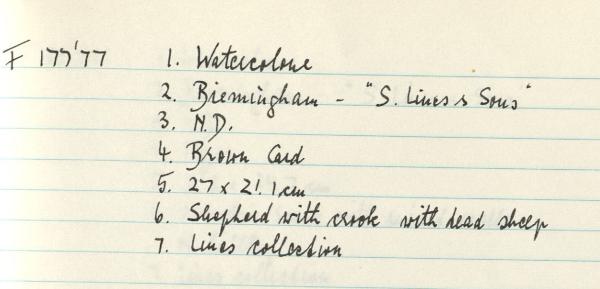 F 177'77 1. Watercolour
2. Birmingham - "S. Lines & Sons"
3. N.D.
4. Brown Card
5. 27 x 21.1cm
6. Shepherd with crook with dead sheep
7. Lines collection